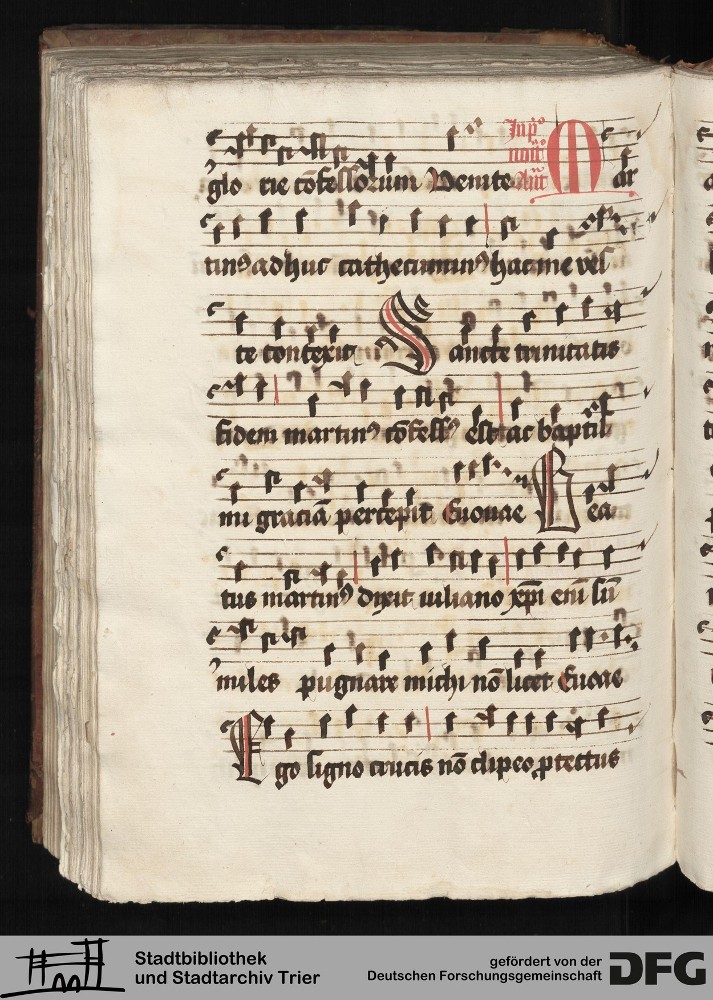 glo rie cõfessorum Venite Jn pº
nocᵗ
Añ Mar
tinꝰ adhuc cathecuminꝰ hac me ves
te contexit Sancte trinitatis
fidem martinꝰ cõfessꝰ est ac baptis
mi graciã percepit Euouae Bea
tus martinꝰ dixit iuliano xp̃i eni sũ
miles pugnare michi nõ licet Euoae
Ego signo crucis nõ clipeo ꝓtectus
Stadtbibliothek
und Stadtarchiv Trier
gefördert von der
Deutschen Forschungsgemeinschaft
DFG